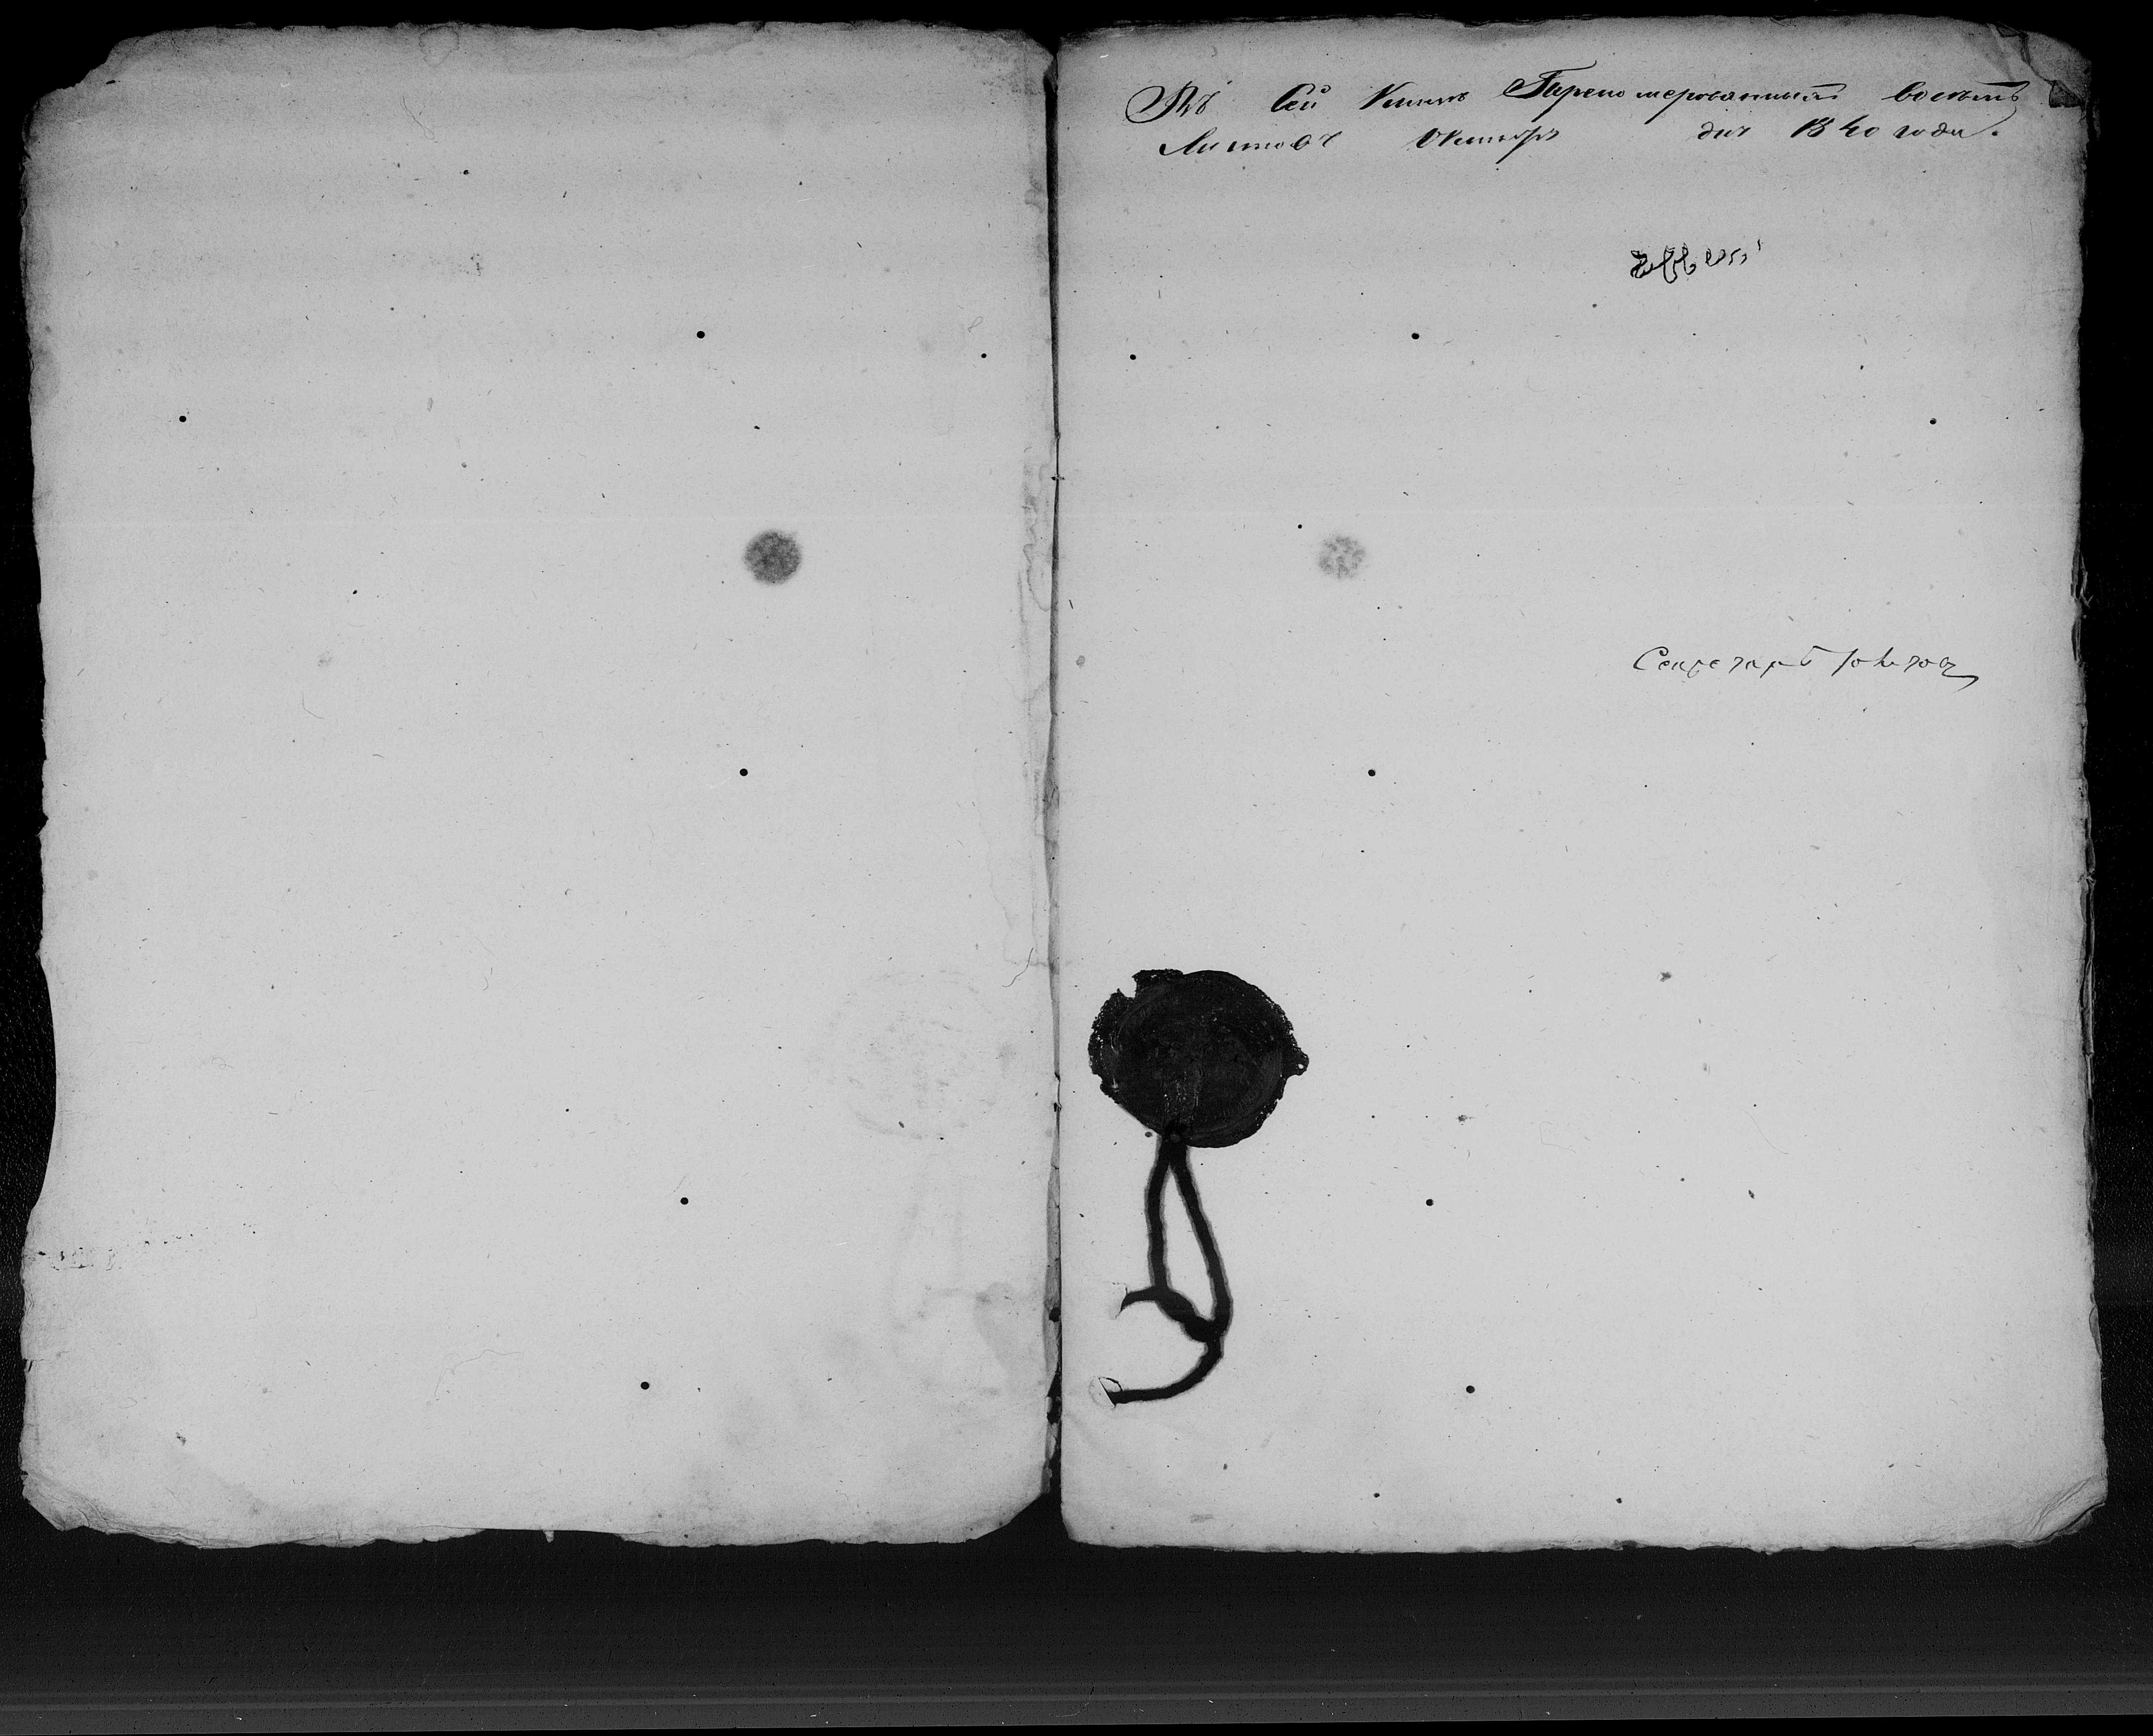 Въ Сей Книгѣ Парено мерованныхъ восемь
Листовъ Октября дня 1840 года.
Секретарь